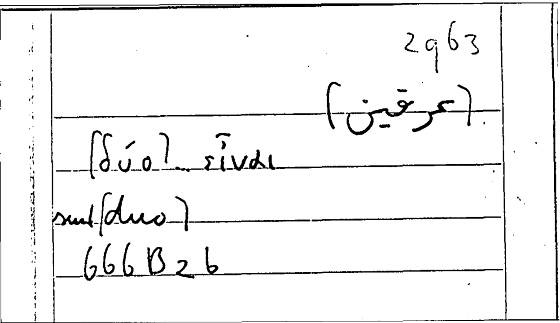 2963
[عرقين]
[δύο] εἶναι
sunt [duo]
666B26